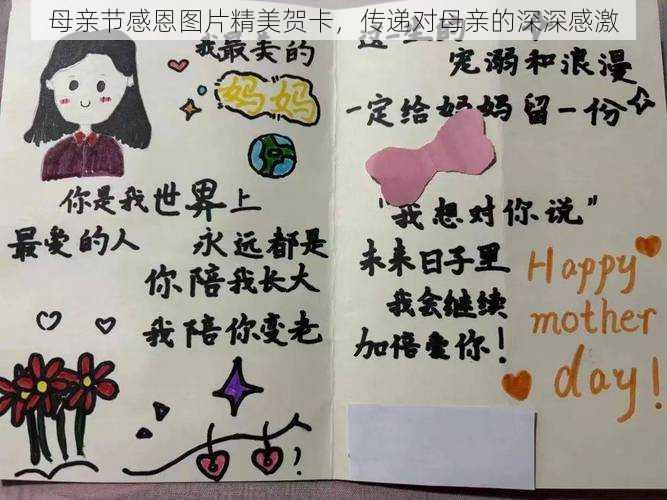 母亲节感恩图片精美贺卡，传递对母亲的深深感激
我最美的
妈妈
你是我世界上
最爱的人 永远都是
你陪我长大
我陪你变老
这一生的
宠溺和浪漫
一定给妈妈留一份
"我想对你说"
未来日子里
我会继续
加倍爱你!
Happy
mother
day!